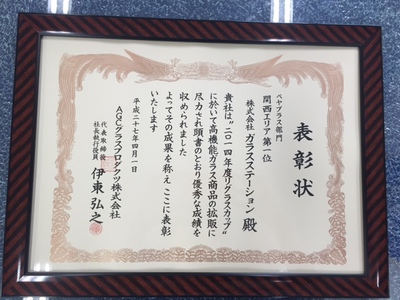 表彰状
ペヤグラス部門
関西エリア第一位
株式会社 ガラスステーション 殿
貴社は“二〇一四年度リグラスカップ”
に於いて高機能ガラス商品の拡販に
尽力され頭書のとおり優秀な成績を
収められました
よってその成果を称えここに表彰
いたします
平成二十七年四月一日
AGCグラスプロダクツ株式会社
代表取締役
社長執行役員
伊東弘之